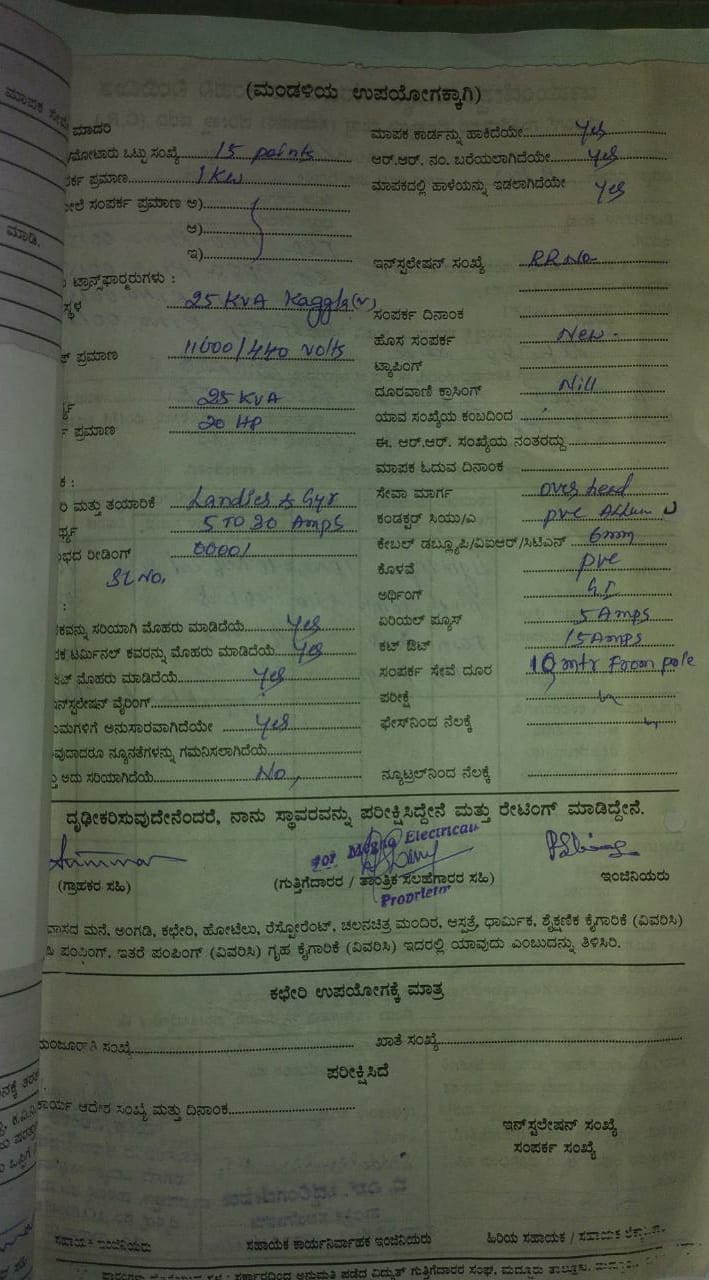 (ಮಂಡಳಿಯ ಉಪಯೋಗಕ್ಕಾಗಿ)
ಮಾಪಕ ಸೇವೆ
ಮಾದರಿ
/ಮೋಟಾರು ಒಟ್ಟು ಸಂಖ್ಯೆ 15 points
ಪರ್ಕ ಪ್ರಮಾಣ 1 KW
ಮೇಲೆ ಸಂಪರ್ಕ ಪ್ರಮಾಣ ಅ)
ಆ)
ಇ)
ಮಾಡಿ.
ಟ್ರಾನ್ಸ್‌ಫಾರ್ಮರುಗಳು :
ಸ್ಥಳ 25 KVA Kaggla(v)
ಪ್ರಮಾಣ 11000/440 volts
25 KVA
ಪ್ರಮಾಣ 20 HP
ಕ :
ರಿ ಮತ್ತು ತಯಾರಿಕೆ Landies & Gyr
ರ್ಥ್ಯ 5 TO 20 Amps
ಭದ ರೀಡಿಂಗ್ 00001
Sl No.
:
ಕವನ್ನು ಸರಿಯಾಗಿ ಮೊಹರು ಮಾಡಿದೆಯೆ Yes
ಕ ಟರ್ಮಿನಲ್ ಕವರನ್ನು ಮೊಹರು ಮಾಡಿದೆಯೆ Yes
ಟ್ ಮೊಹರು ಮಾಡಿದೆಯೆ Yes
ಇನ್‌ಸ್ಟಲೇಷನ್ ವೈರಿಂಗ್
ಯಮಗಳಿಗೆ ಅನುಸಾರವಾಗಿದೆಯೇ Yes
ವುದಾದರೂ ನ್ಯೂನತೆಗಳನ್ನು ಗಮನಿಸಲಾಗಿದೆಯೆ
ಅದು ಸರಿಯಾಗಿದೆಯೆ No,
ಮಾಪಕ ಕಾರ್ಡನ್ನು ಹಾಕಿದೆಯೇ Yes
ಆರ್.ಆರ್. ನಂ. ಬರೆಯಲಾಗಿದೆಯೇ Yes
ಮಾಪಕದಲ್ಲಿ ಹಾಳೆಯನ್ನು ಇಡಲಾಗಿದೆಯೇ Yes
ಇನ್‌ಸ್ಟಲೇಷನ್ ಸಂಖ್ಯೆ RR No-
ಸಂಪರ್ಕ ದಿನಾಂಕ
ಹೊಸ ಸಂಪರ್ಕ New -
ಟ್ಯಾಪಿಂಗ್
ದೂರವಾಣಿ ಕ್ರಾಸಿಂಗ್ Nill
ಯಾವ ಸಂಖ್ಯೆಯ ಕಂಬದಿಂದ
ಈ. ಆರ್.ಆರ್. ಸಂಖ್ಯೆಯ ನಂತರದ್ದು
ಮಾಪಕ ಓದುವ ದಿನಾಂಕ
ಸೇವಾ ಮಾರ್ಗ over head
ಕಂಡಕ್ಟರ್ ಸಿಯು/ಎ pvc
ಕೇಬಲ್ ಡಬ್ಲ್ಯೂಪಿ/ವಿಐಆರ್/ಸಿಟಿಎಸ್ 6mm
ಕೊಳವೆ pvc
ಅರ್ಥಿಂಗ್ G.I
ಏರಿಯಲ್ ಫ್ಯೂಸ್ 5 Amps
ಕಟ್ ಔಟ್ 15 Amps
ಸಂಪರ್ಕ ಸೇವೆ ದೂರ 10 mtr From pole
ಪರೀಕ್ಷೆ
ಫೇಸ್‌ನಿಂದ ನೆಲಕ್ಕೆ
ನ್ಯೂಟ್ರಲ್‌ನಿಂದ ನೆಲಕ್ಕೆ
ದೃಢೀಕರಿಸುವುದೇನೆಂದರೆ, ನಾನು ಸ್ಥಾವರವನ್ನು ಪರೀಕ್ಷಿಸಿದ್ದೇನೆ ಮತ್ತು ರೇಟಿಂಗ್ ಮಾಡಿದ್ದೇನೆ.
For Megha Electrical
(ಗ್ರಾಹಕರ ಸಹಿ)
(ಗುತ್ತಿಗೆದಾರರ / ತಾಂತ್ರಿಕ ಸಲಹೆಗಾರರ ಸಹಿ)
ಇಂಜಿನಿಯರು
Proprietor
ವಾಸದ ಮನೆ, ಅಂಗಡಿ, ಕಛೇರಿ, ಹೋಟೆಲು, ರೆಸ್ಟೋರೆಂಟ್, ಚಲನಚಿತ್ರ ಮಂದಿರ, ಆಸ್ಪತ್ರೆ, ಧಾರ್ಮಿಕ, ಶೈಕ್ಷಣಿಕ ಕೈಗಾರಿಕೆ (ವಿವರಿಸಿ)
ಪಂಪಿಂಗ್, ಇತರೆ ಪಂಪಿಂಗ್ (ವಿವರಿಸಿ) ಗೃಹ ಕೈಗಾರಿಕೆ (ವಿವರಿಸಿ) ಇದರಲ್ಲಿ ಯಾವುದು ಎಂಬುದನ್ನು ತಿಳಿಸಿರಿ.
ಕಛೇರಿ ಉಪಯೋಗಕ್ಕೆ ಮಾತ್ರ
ಮಂಜೂರಾತಿ ಸಂಖ್ಯೆ
ಖಾತೆ ಸಂಖ್ಯೆ
ಪರೀಕ್ಷಿಸಿದೆ
ಕಾರ್ಯ ಆದೇಶ ಸಂಖ್ಯೆ ಮತ್ತು ದಿನಾಂಕ
ಇನ್‌ಸ್ಟಲೇಷನ್ ಸಂಖ್ಯೆ
ಸಂಪರ್ಕ ಸಂಖ್ಯೆ
ಸಹಾಯಕ ಇಂಜಿನಿಯರು
ಸಹಾಯಕ ಕಾರ್ಯನಿರ್ವಾಹಕ ಇಂಜಿನಿಯರು
ಹಿರಿಯ ಸಹಾಯಕ / ಸಹಾಯಕ
ಸರ್ಕಾರದಿಂದ ಅನುಮತಿ ಪಡೆದ ವಿದ್ಯುತ್ ಗುತ್ತಿಗೆದಾರರ ಸಂಘ, ಮದ್ದೂರು ತಾಲ್ಲೂಕು,